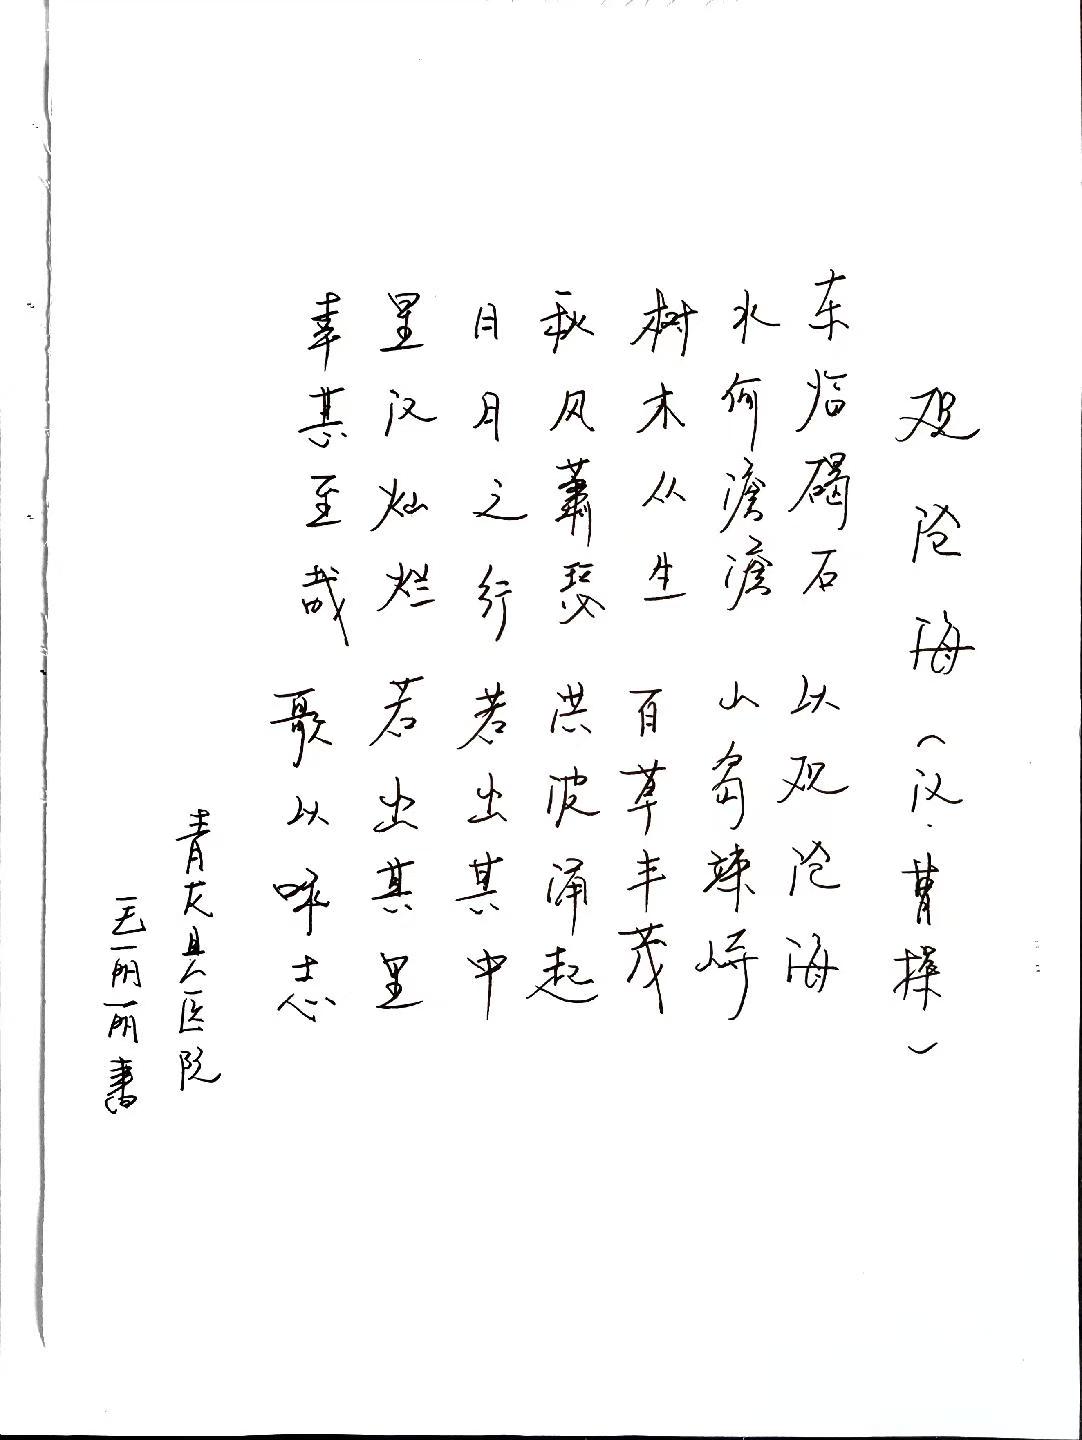 观沧海(汉.曹操)
东临碣石 以观沧海
水何澹澹 山岛竦峙
树木丛生 百草丰茂
秋风萧瑟 洪波涌起
日月之行 若出其中
星汉灿烂 若出其里
幸甚至哉 歌以咏志
青龙县医院
毛丽丽书